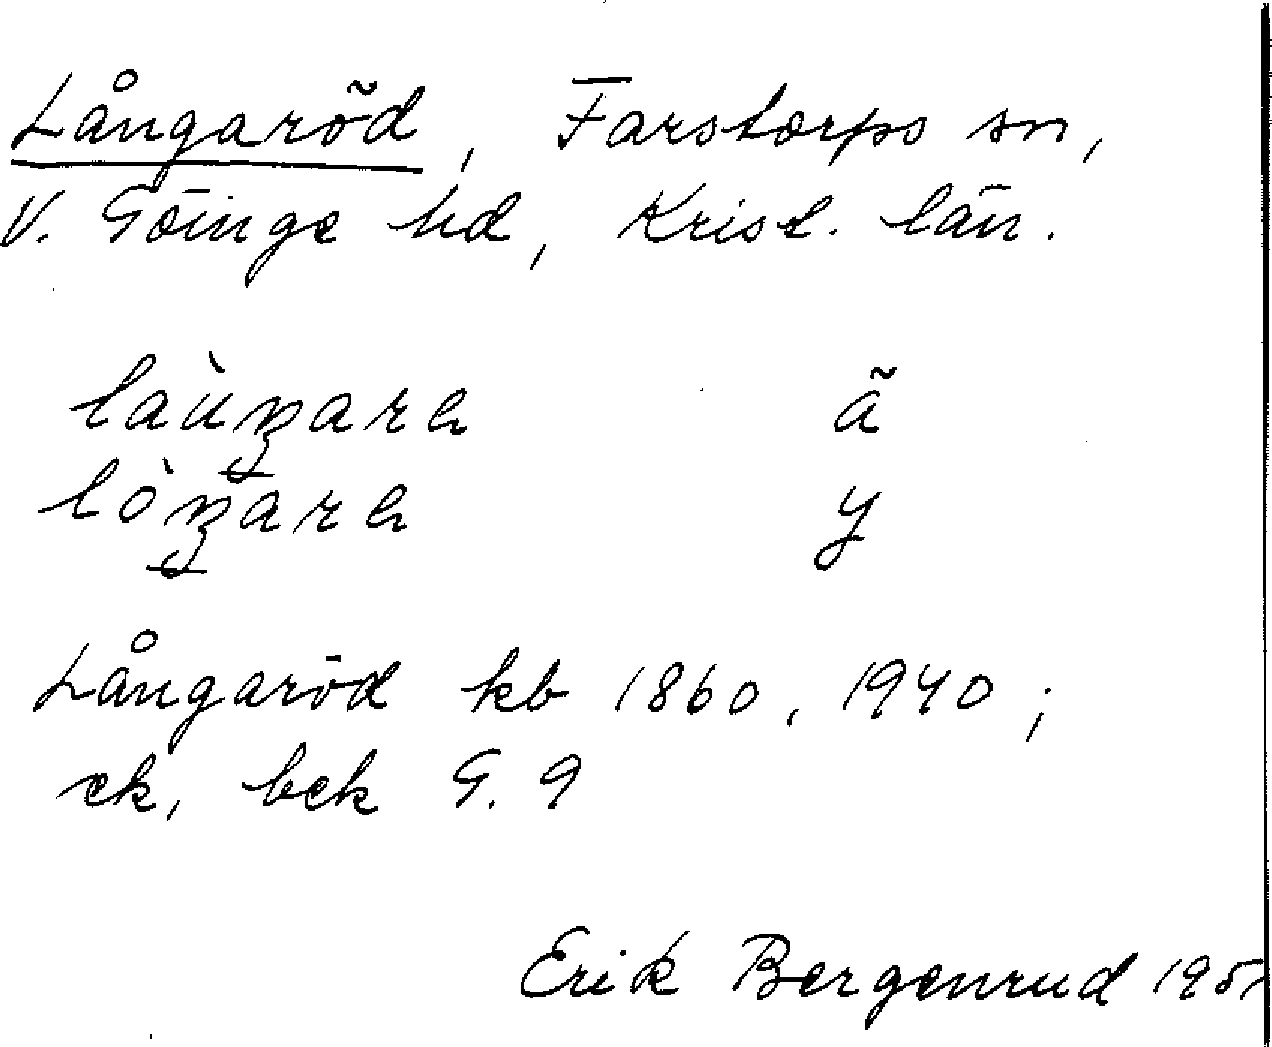 Långaröd, Farstorps sn,
V. Göinge hd, Krist. län.
ä
y
Långaröd kb 1860, 1940;
ek, bek G. 9
Erik Bergenrud